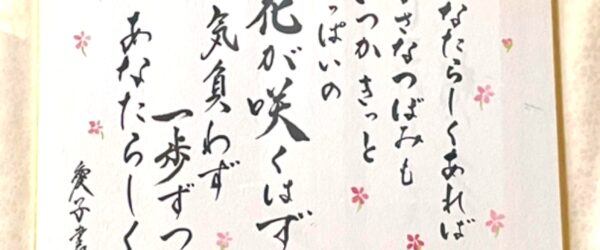 なたらしくあれば
さなつばみも
つかきっと
っぱいの
花が咲くはず
気負わず
一歩ずつ
あなたらしく
愛子書